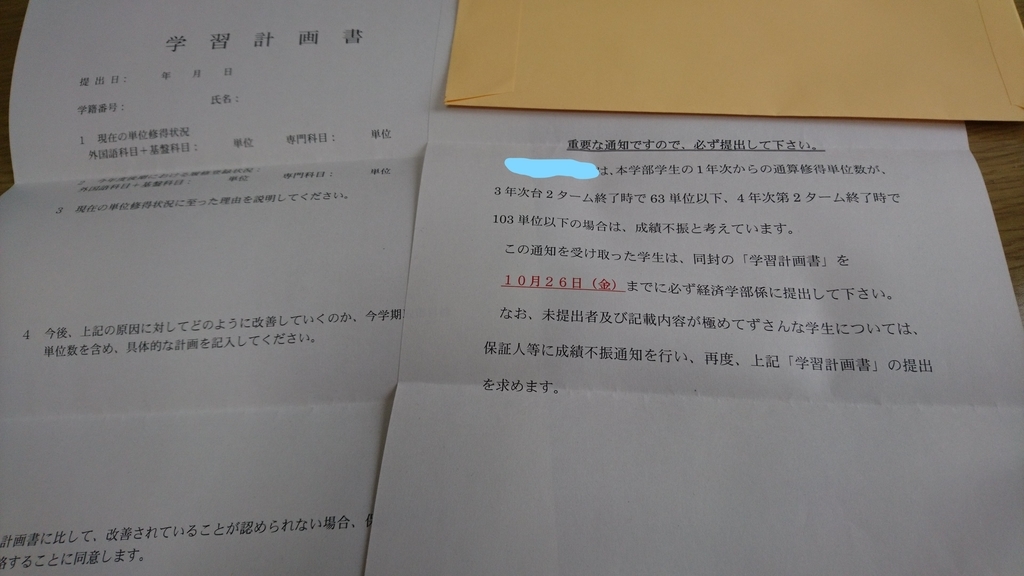 学習計画書
提出日： 年 月 日
学籍番号： 氏名：
1 現在の単位修得状況
外国語科目＋基盤科目： 単位 専門科目： 単位
外国語科目＋基盤科目： 単位 専門科目： 単位
3 現在の単位修得状況に至った理由を説明してください。
4 今後、上記の原因に対してどのように改善していくのか、今学期
単位数を含め、具体的な計画を記入してください。
計画書に比して、改善されていることが認められない場合、
することに同意します。
重要な通知ですので、必ず提出して下さい。
は、本学部学生の１年次からの通算修得単位数が、
３年次台２ターム終了時で 63 単位以下、４年次第２ターム終了時で
103 単位以下の場合は、成績不振と考えています。
この通知を受け取った学生は、同封の「学習計画書」を
１０月２６日（金）までに必ず経済学部係に提出して下さい。
なお、未提出者及び記載内容が極めてずさんな学生については、
保証人等に成績不振通知を行い、再度、上記「学習計画書」の提出
を求めます。